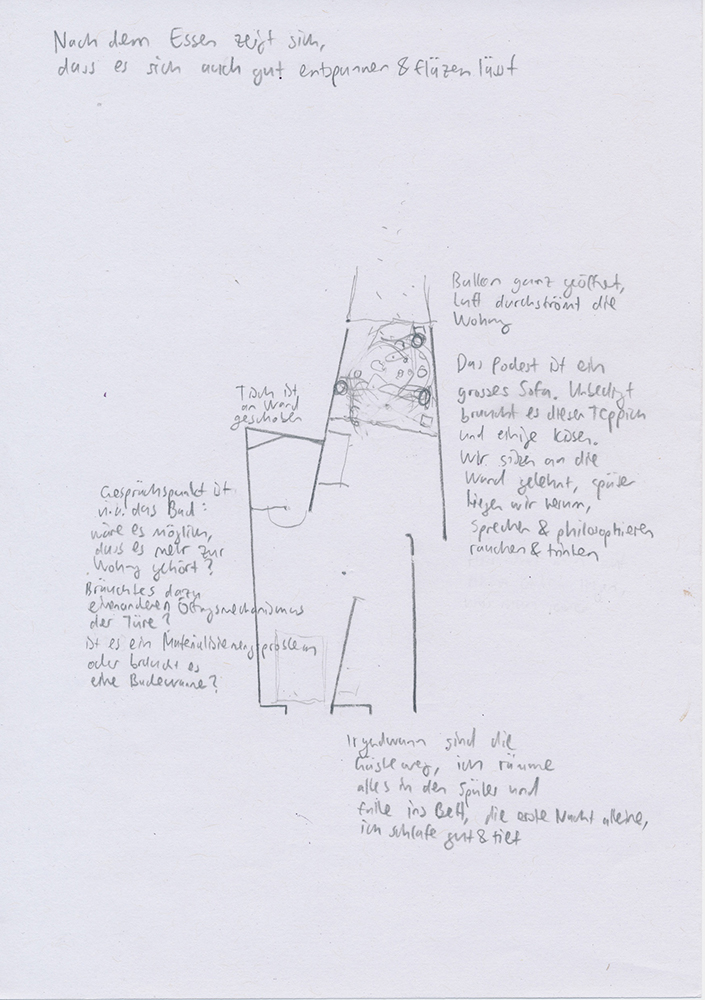 Nach dem Essen zeigt sich,
dass es sich auch gut entspannen & fläzen lässt
Balkon ganz geöffnet,
Luft durchströmt die
Wohnung
Das Podest ist ein
grosses Sofa. Unbedingt
braucht es diesen Teppich
und einige Kissen.
Wir sitzen an die
Wand gelehnt, später
liegen wir herum,
sprechen & philosophieren
rauchen & trinken
Tisch ist
an Wand
geschoben
Gesprächspunkt ist
das Bad:
wäre es möglich,
dass es mehr zur
Wohnung gehört?
Bräuchte es dazu
einen anderen Öffnungsmechanismus
der Türe?
ist es ein Materialisierungsproblem
oder braucht es
eine Badewanne?
Irgendwann sind die
Gäste weg, ich räume
alles in den Spüler und
falle ins Bett, die erste Nacht alleine,
ich schlafe gut & tief